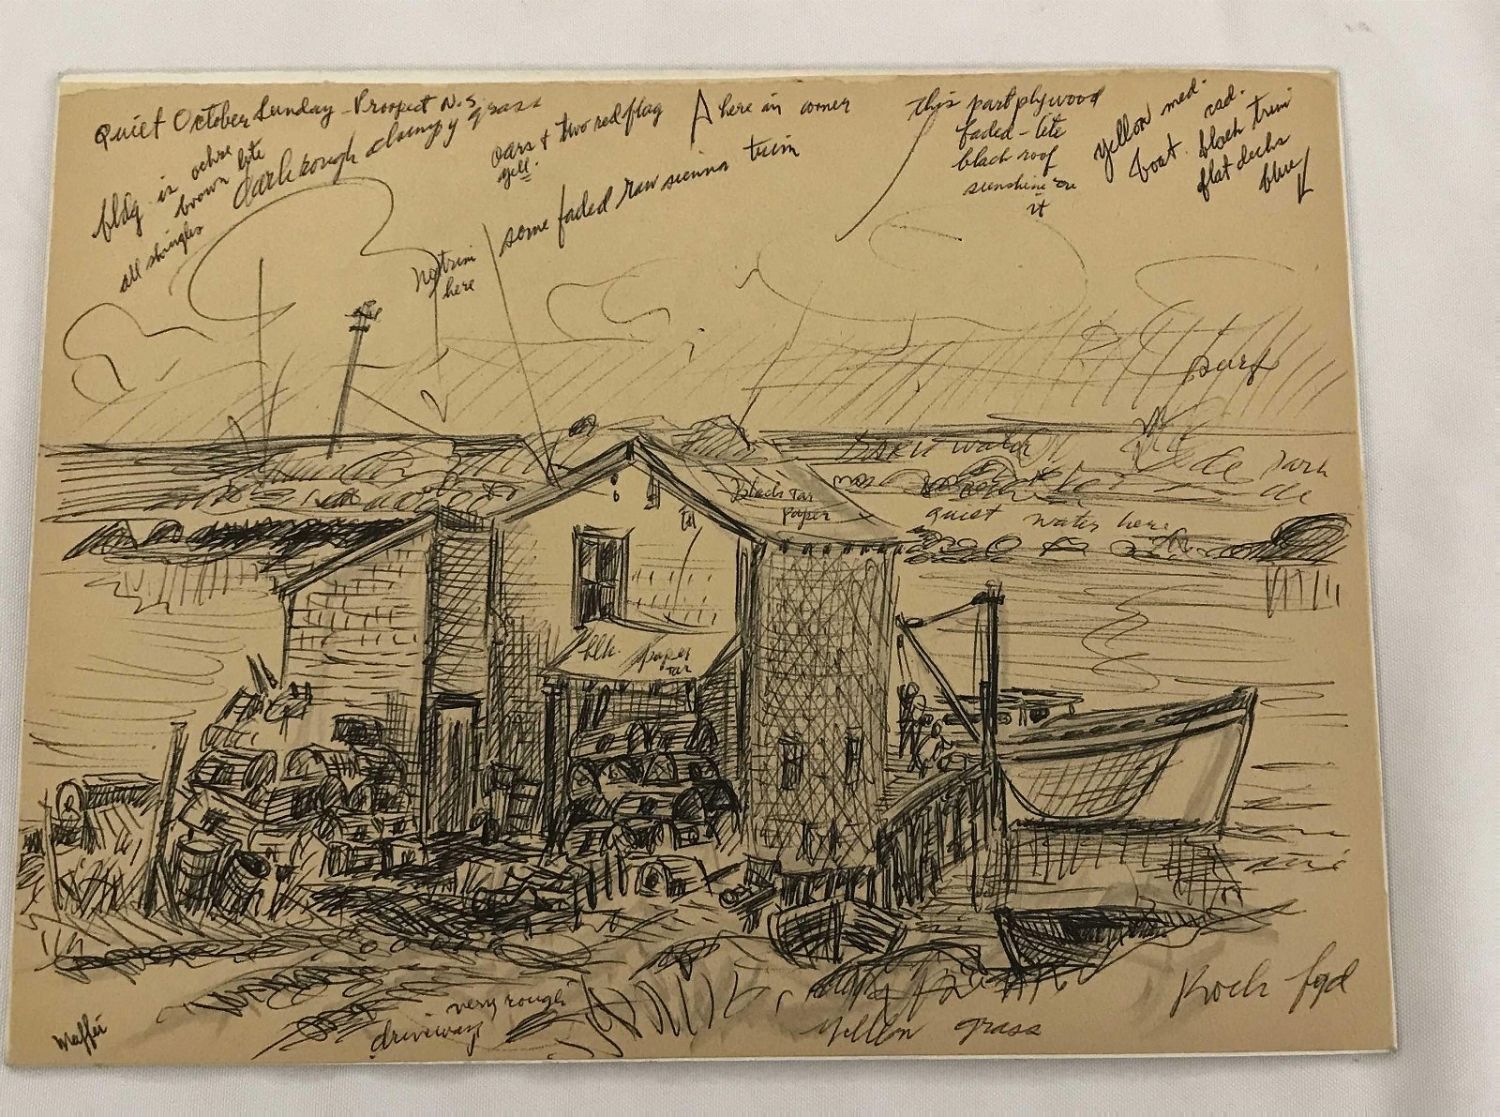 Quiet October Sunday - Prospect N.S.
dark rough clumpy grass
bldg. is ochre
brown lite
all shingles
oars & two red flag
yell.
A here in corner
some faded raw sienna trim
no trim
here
this part plywood
faded - lite
black roof
sunshine on
it
yellow med.
boat. black trim
flat decks
blue
surf
water
dark
quiet water here
Black tar
paper
blk. paper
tar
very rough
driveway
yellow grass
Rock fgd
Maffei